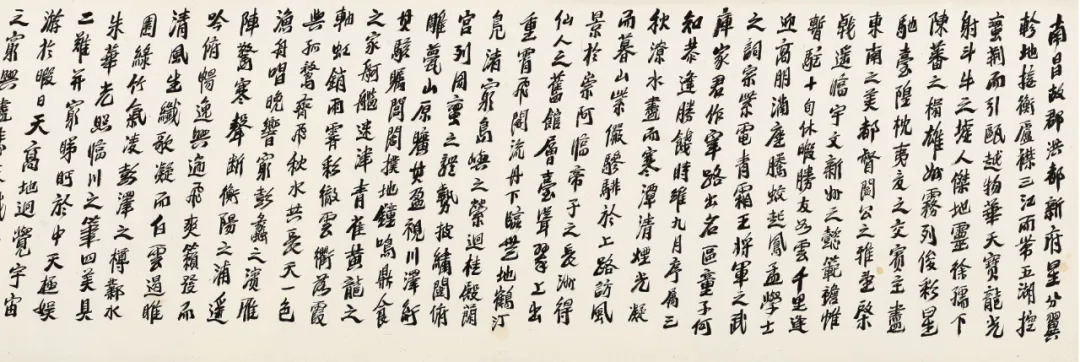 南昌故郡洪都新府星分翼
軫地接衡廬襟三江而帶五湖控
蠻荊而引甌越物華天寶龍光
射斗牛之墟人傑地靈徐孺下
陳蕃之榻雄州霧列俊彩星
馳臺隍枕夷夏之交賓主盡
東南之美都督閻公之雅望棨
戟遙臨宇文新州之懿範襜帷
暫駐十旬休暇勝友如雲千里逢
迎高朋滿座騰蛟起鳳孟學士
之詞宗紫電青霜王將軍之武
庫家君作宰路出名區童子何
知恭逢勝餞時維九月序屬三
秋潦水盡而寒潭清煙光凝
而暮山紫儼驂騑於上路訪風
景於崇阿臨帝子之長洲得
仙人之舊館層臺聳翠上出
重霄飛閣流丹下臨無地鶴汀
鳧渚窮島嶼之縈迴桂殿蘭
宮列岡巒之體勢披繡闥俯
雕甍山原曠其盈視川澤盱
其駭矚閭閻撲地鐘鳴鼎食
之家舸艦迷津青雀黃龍之
軸虹銷雨霽彩徹雲衢落霞
與孤鶩齊飛秋水共長天一色
漁舟唱晚響窮彭蠡之濱雁
陣驚寒聲斷衡陽之浦遙
吟俯暢逸興遄飛爽籟發而
清風生纖歌凝而白雲遏睢
園綠竹氣凌彭澤之樽鄴水
朱華光照臨川之筆四美具
二難并窮睇眄於中天極娛
游於暇日天高地迥覺宇宙
之窮興盡悲